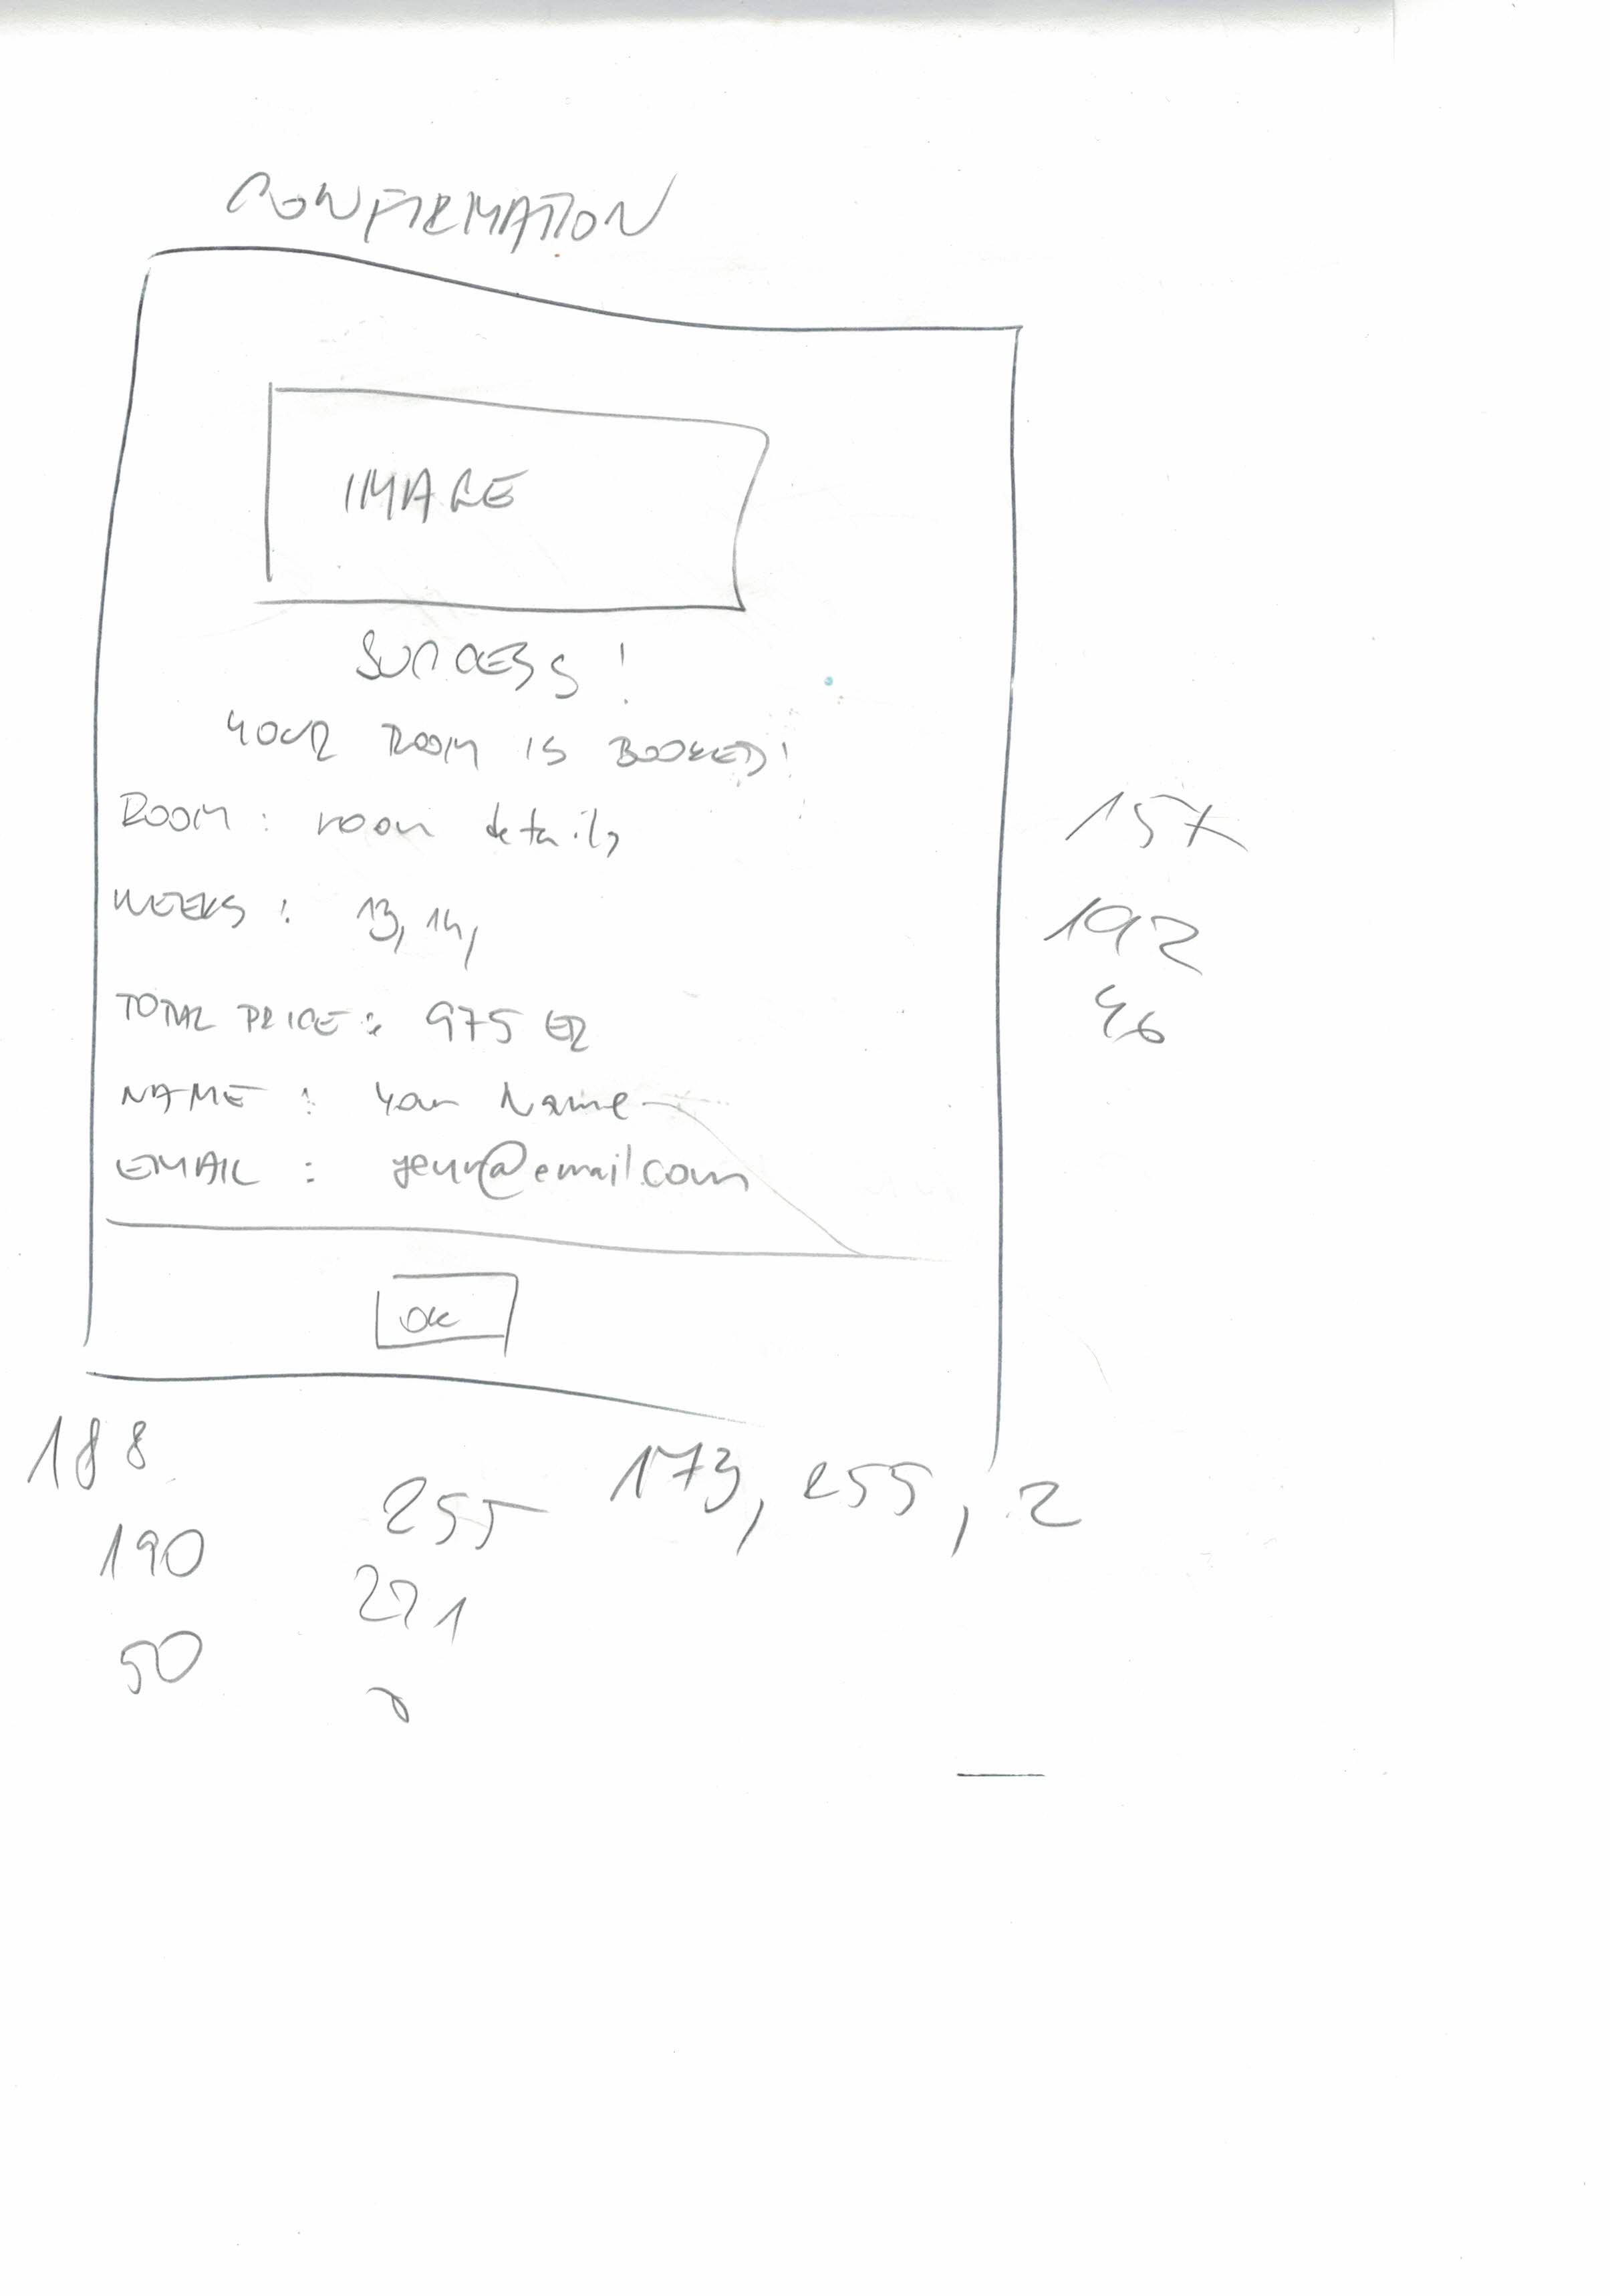 CONFIRMATION
IMAGE
SUCCESS!
YOUR ROOM IS BOOKED!
ROOM: room details
WEEKS: 13, 14,
TOTAL PRICE: 975
NAME: Your Name
EMAIL: your@email.com
OK
157
192
46
188
190
50
255
221
173, 255, 2